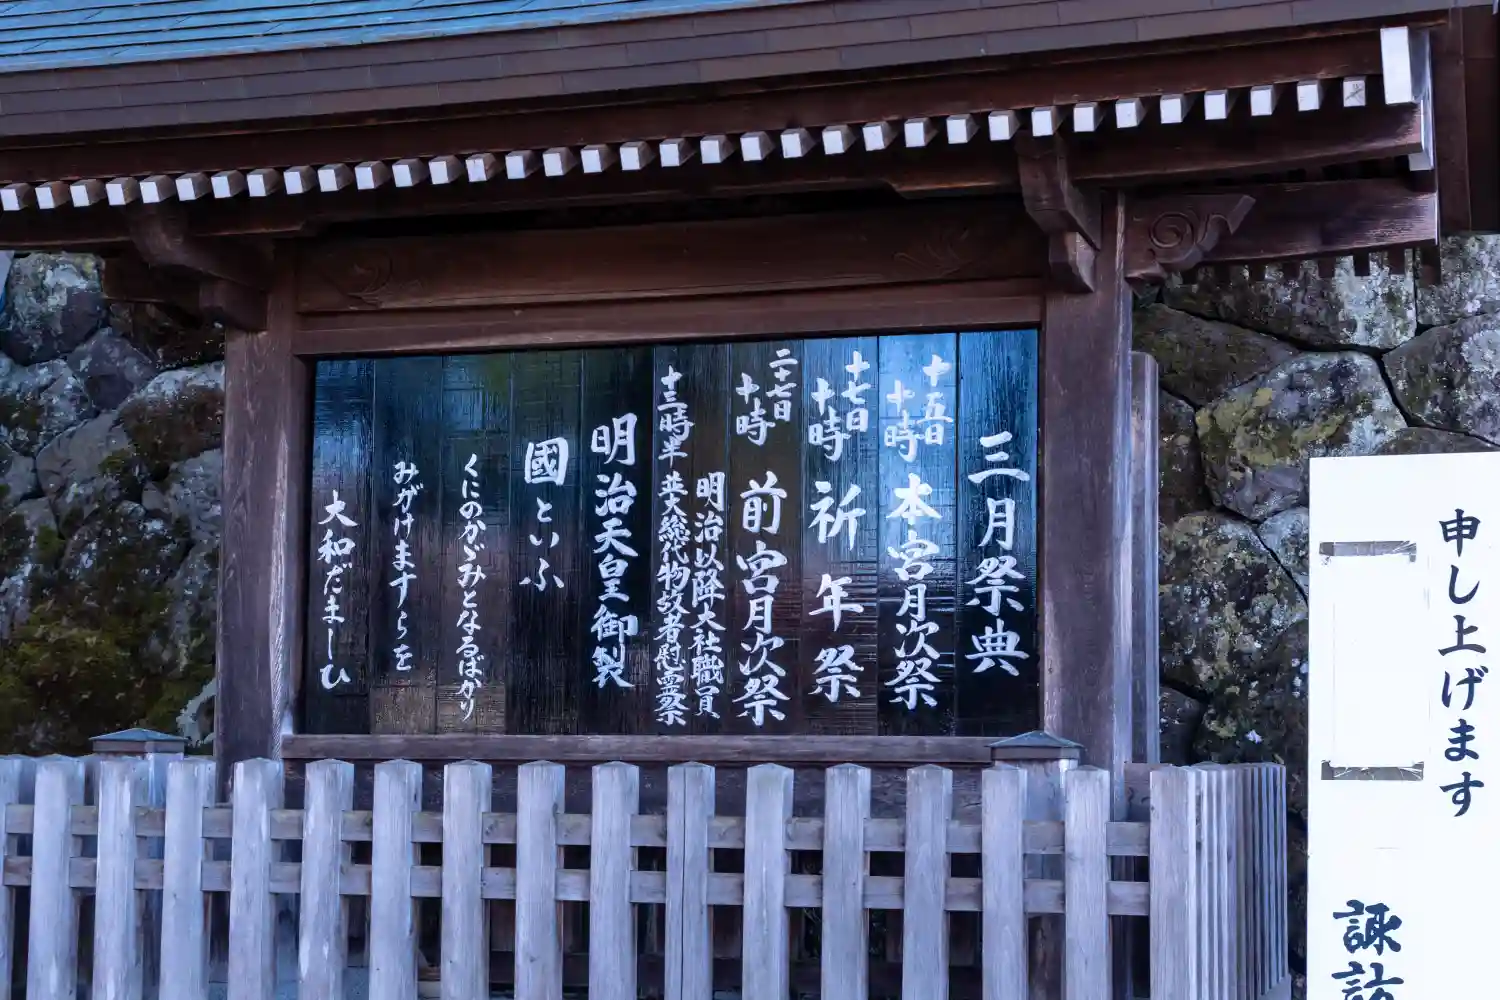 三月祭典
十五日
十時
本宮月次祭
十七日
十時
祈年祭
二十七日
十時
前宮月次祭
明治以降大社職員
十三時半
並大総代物故者慰霊祭
明治天皇御製
國といふ
くにのかゞみとなるばかり
みがけますらを
大和だましひ
申し上げます
諏訪